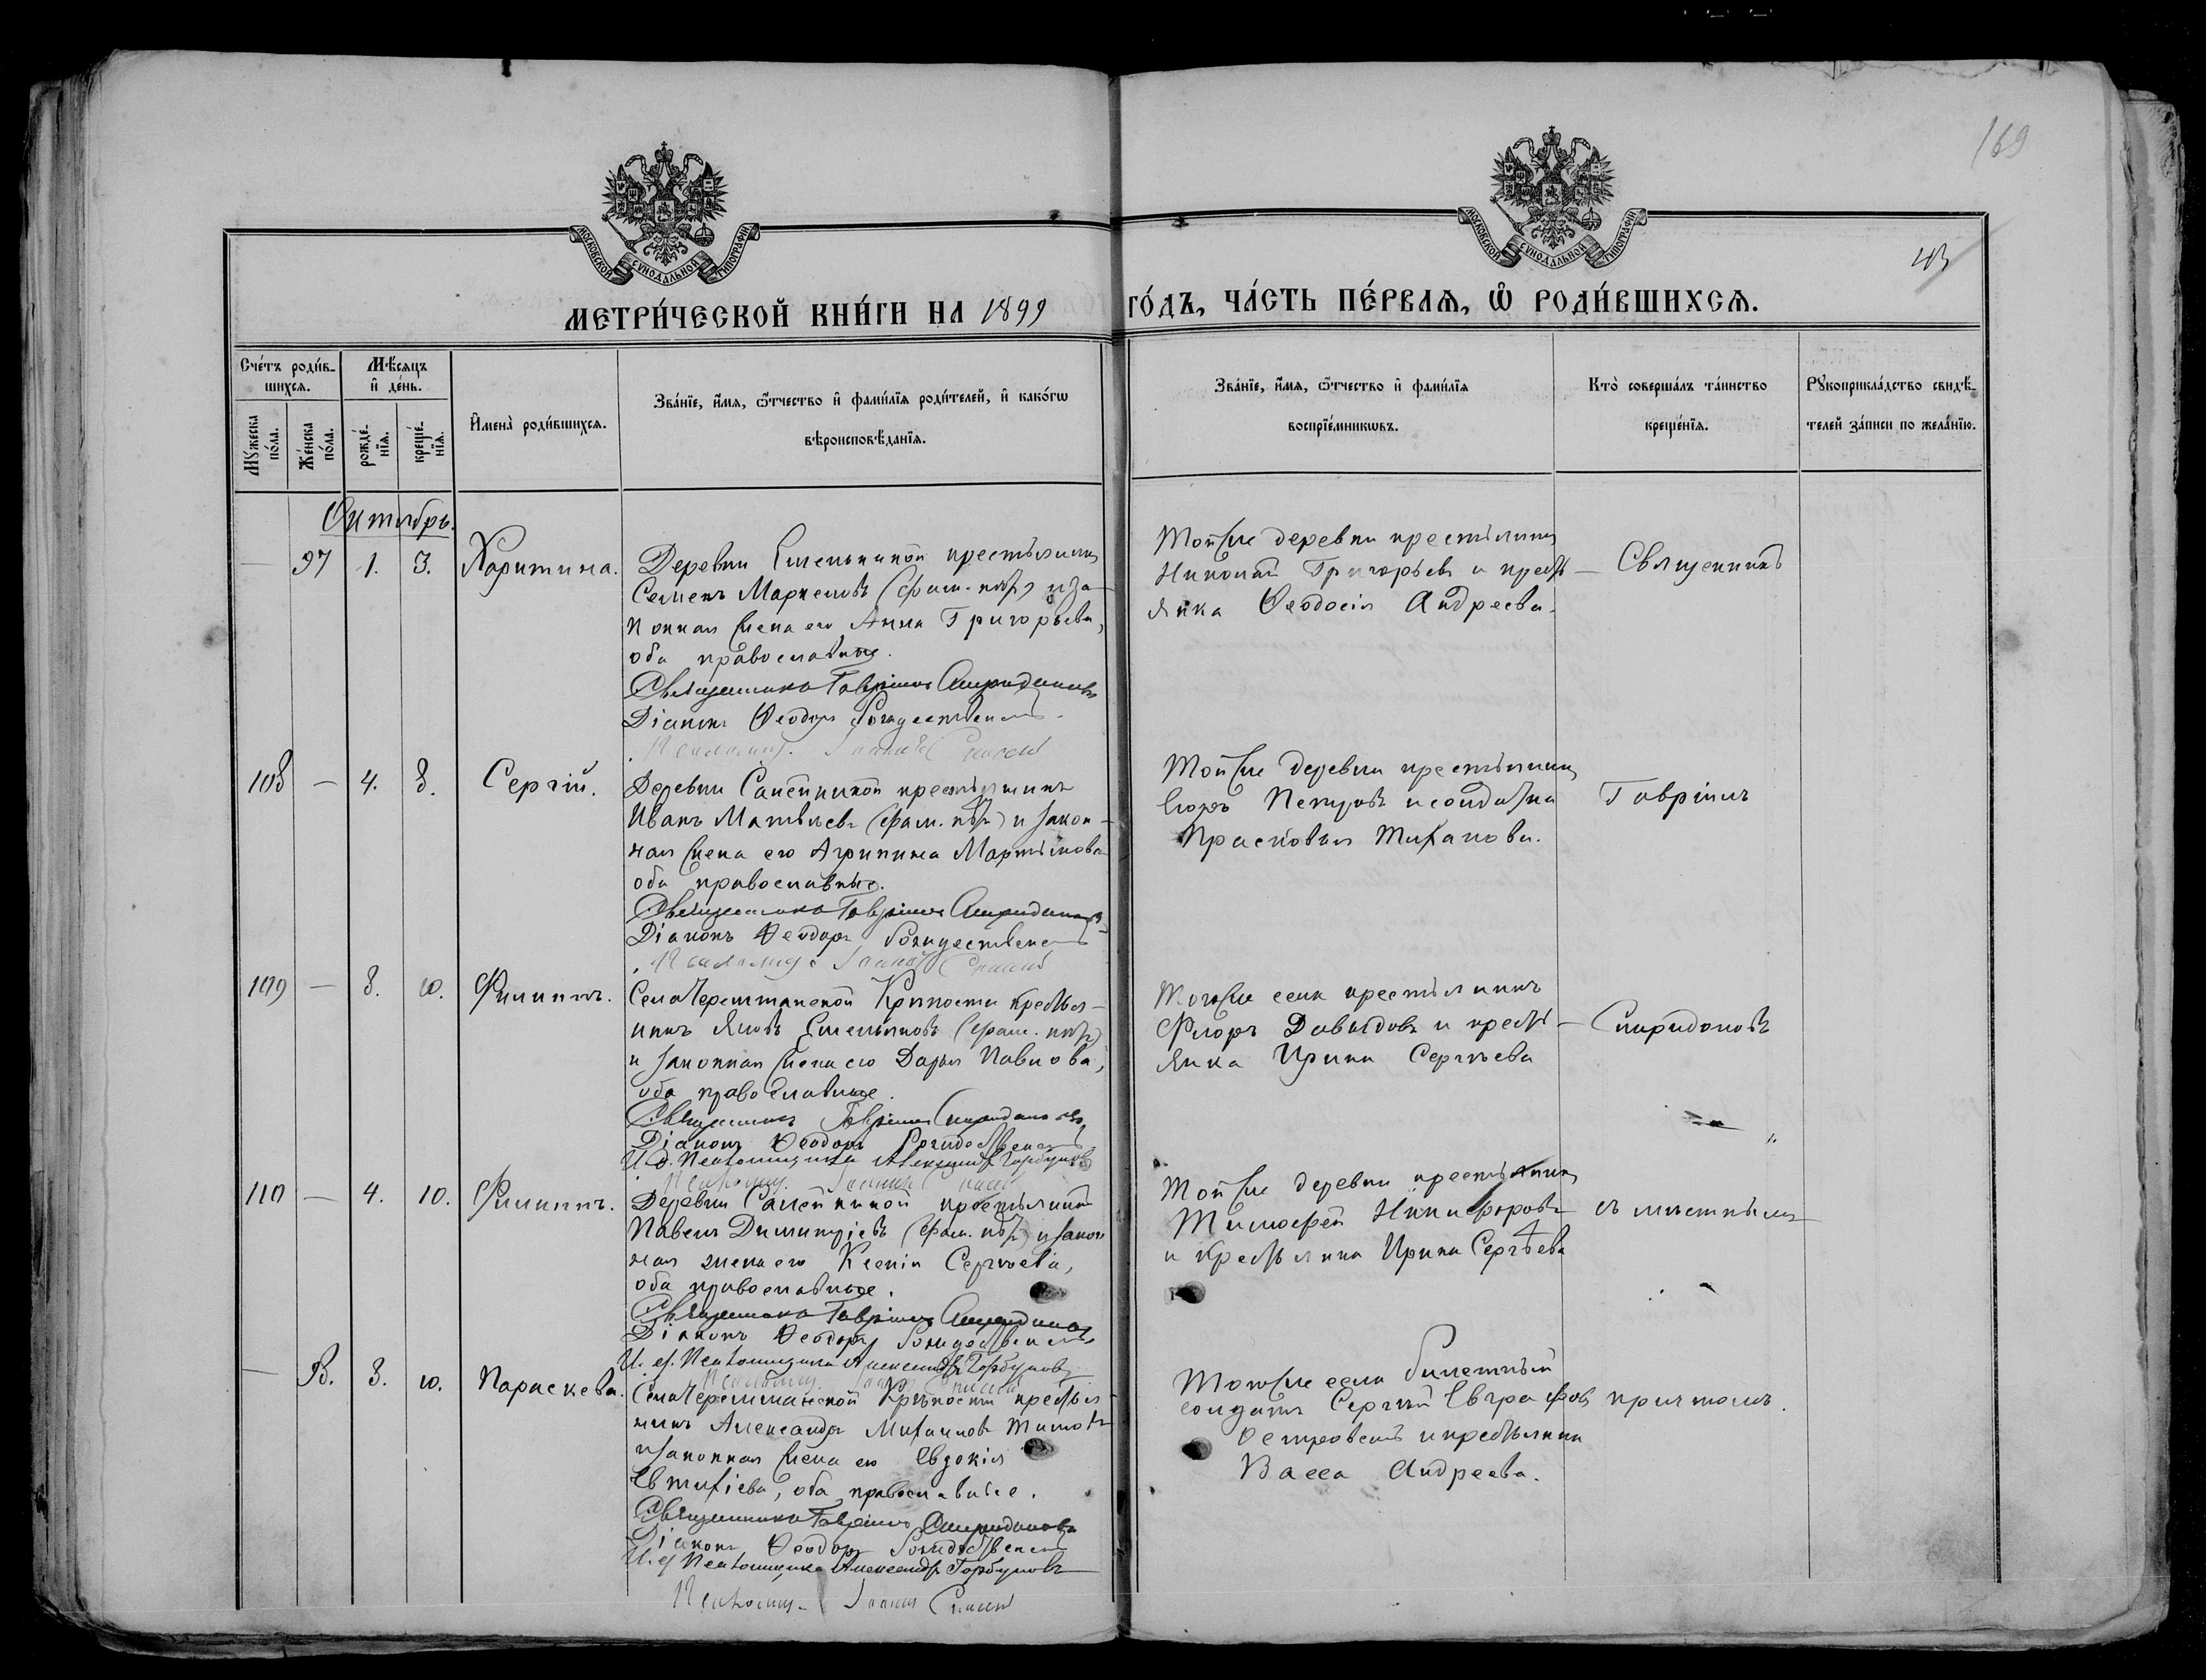 169
МОСКОВСКОЙ СУНОДАЛЬНОЙ ТИПОГРАФІИ
МОСКОВСКОЙ СУНОДАЛЬНОЙ ТИПОГРАФІИ
МЕТРИ́ЧЕСКОЙ КНИ́ГИ НА 1899 ГО́ДЪ, ЧА́СТЬ ПЕ́РВАѦ, Ѡ҆ РОДИ́ВШИХСѦ.
Сче́тъ роди́в-
шихсѧ.
Мꙋ́жеска по́ла.
Же́нска по́ла.
Мѣ́сяцъ
и҆ де́нь.
рожде́-
нїѧ.
креще́-
нїѧ.
И҆мена̀ роди́вшихсѧ.
Зва́нїе, и҆́мѧ, ѻ҆́тчество и҆ фами́лїѧ роди́телей, и҆ како́гѡ
вѣроисповѣ́данїѧ.
Зва́нїе, и҆́мѧ, ѻ҆́тчество и҆ фами́лїѧ
воспрїе́мникѡвъ.
Кто̀ соверша́лъ та́инство
креще́нїѧ.
Рꙋкоприкла́дство свидѣ́-
телей за́писи по жела́нїю.
Октябрь.
— 97 1. 3. Харитина.
Деревни Емелькиной крестьянинъ
Семенъ Маркеловъ (фам. нѣтъ) и за-
конная жена его Анна Григорьева,
оба православные.
Священникъ Гавріилъ Спиридоновъ
Діаконъ Ѳеодоръ Рождественскій
Псаломщ. Іоаннъ
Той же деревни крестьянинъ
Николай Григорьевъ и кресть-
янка Ѳеодосія Андреева.
Священникъ
108 — 4. 8. Сергій.
Деревни крестьянинъ
Иванъ Матвѣевъ (фам. нѣтъ) и закон-
ная жена его Агрипина Мартынова
оба православные.
Священникъ Гавріилъ Спиридоновъ
Діаконъ Ѳеодоръ Рождественскій
Псаломщ. Іоаннъ
Той же деревни крестьянинъ
Егоръ Петровъ и солдатка
Прасковья Тиханова.
Гавріилъ
109 — 8. 10. Филиппъ.
Села Черемшанской Крѣпости крестья-
нинъ Яковъ Емельяновъ (фам. нѣтъ)
и законная жена его Дарья Павлова,
оба православные.
Священникъ Гавріилъ Спиридоновъ
Діаконъ Ѳеодоръ Рождественскій
И. д. Псаломщика Александръ Горбуновъ
Псаломщ. Іоаннъ
Того же села крестьянинъ
Флоръ Давыдовъ и кресть-
янка Ирина Сергѣева
Спиридоновъ
110 — 4. 10. Филиппъ.
Деревни крестьянинъ
Павелъ Димитріевъ (фам. нѣтъ) и закон
ная жена его Ксенія Сергѣева,
оба православные.
Священникъ Гавріилъ Спиридоновъ
Діаконъ Ѳеодоръ Рождественскій
И. д. Псаломщика Александръ Горбуновъ
Псаломщ.
Той же деревни крестьянинъ
Тимофей Никифоровъ
и крестьянка Ирина Сергѣева
съ мѣстнымъ
— 8. 10. Параскева.
Села Черемшанской Крѣпости крестья-
нинъ Александръ Михаиловъ Титовъ
и законная жена его Евдокія
Евтихіева, оба православные.
Священникъ Гавріилъ Спиридоновъ
Діаконъ Ѳеодоръ Рождественскій
И. д. Псаломщика Александръ Горбуновъ
Псаломщ. Іоаннъ
Того же села билетный
солдатъ Сергѣй Евграфовъ
Островскій и крестьянка
Васса Андреева.
причтомъ.